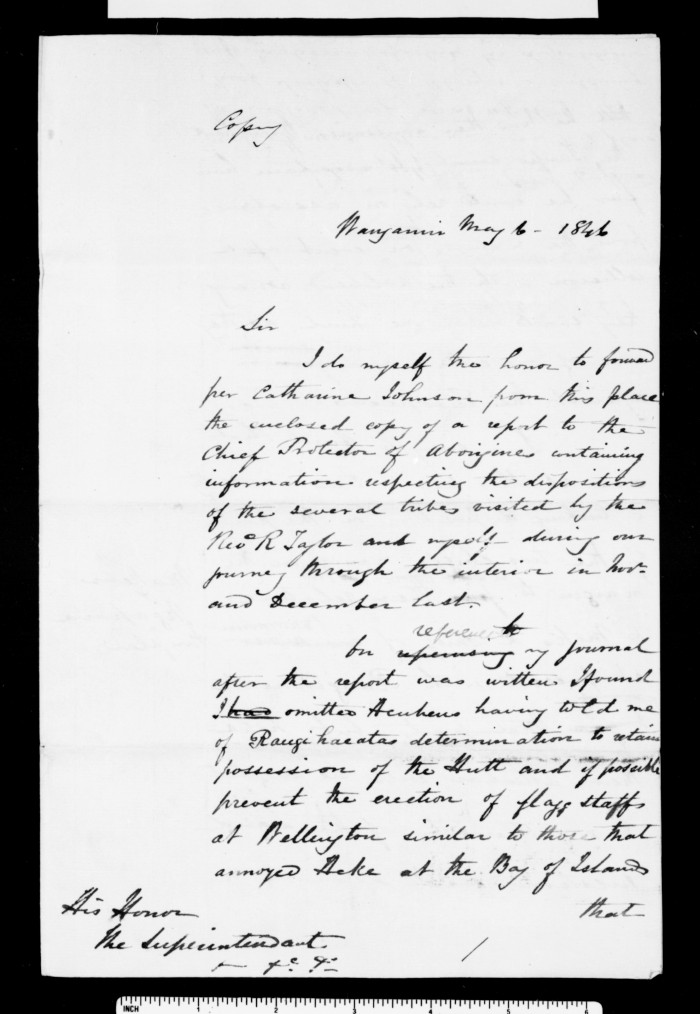 Copy
Wanganui May 6 - 1846
Sir
I do myself the honor to forward
per Catharine Johnson from this place
the enclosed copy of a report to the
Chief Protector of Aborigines containing
information respecting the dispositions
of the several tribes visited by the
Revd R Taylor and myself during our
journey through the interior in Novr
and December last.
reference to
On reperusing my journal
after the report was written I found
I had omitted Heuheus having told me
of Rangihaeatas determination to retain
possession of the Hutt and if possible
prevent the erection of flagg staffs
at Wellington similar to those that
annoyed Heke at the Bay of Islands
that
His Honor
The Superintendant
&c &c
INCH 1 2 3 4 5 6